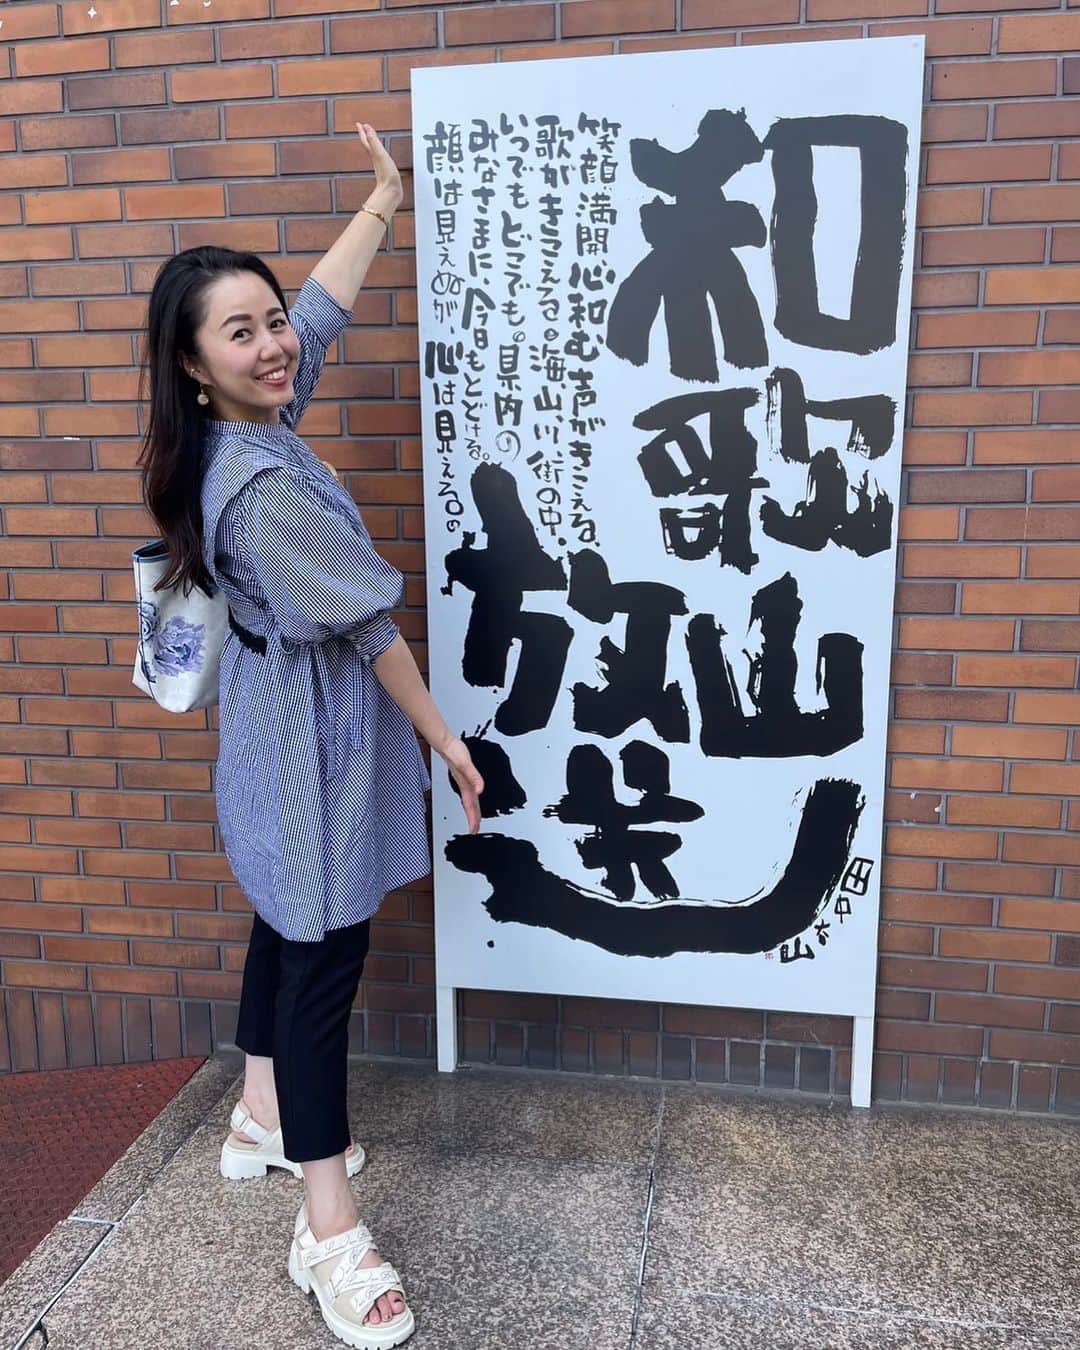 和歌山
放送
笑顔満開、心和む声がきこえる、
歌がきこえる。海、山、川、街の中、
いつでもどこでも。県内の
みなさまに、今日もとどける。
顔は見えぬが、心は見えるの